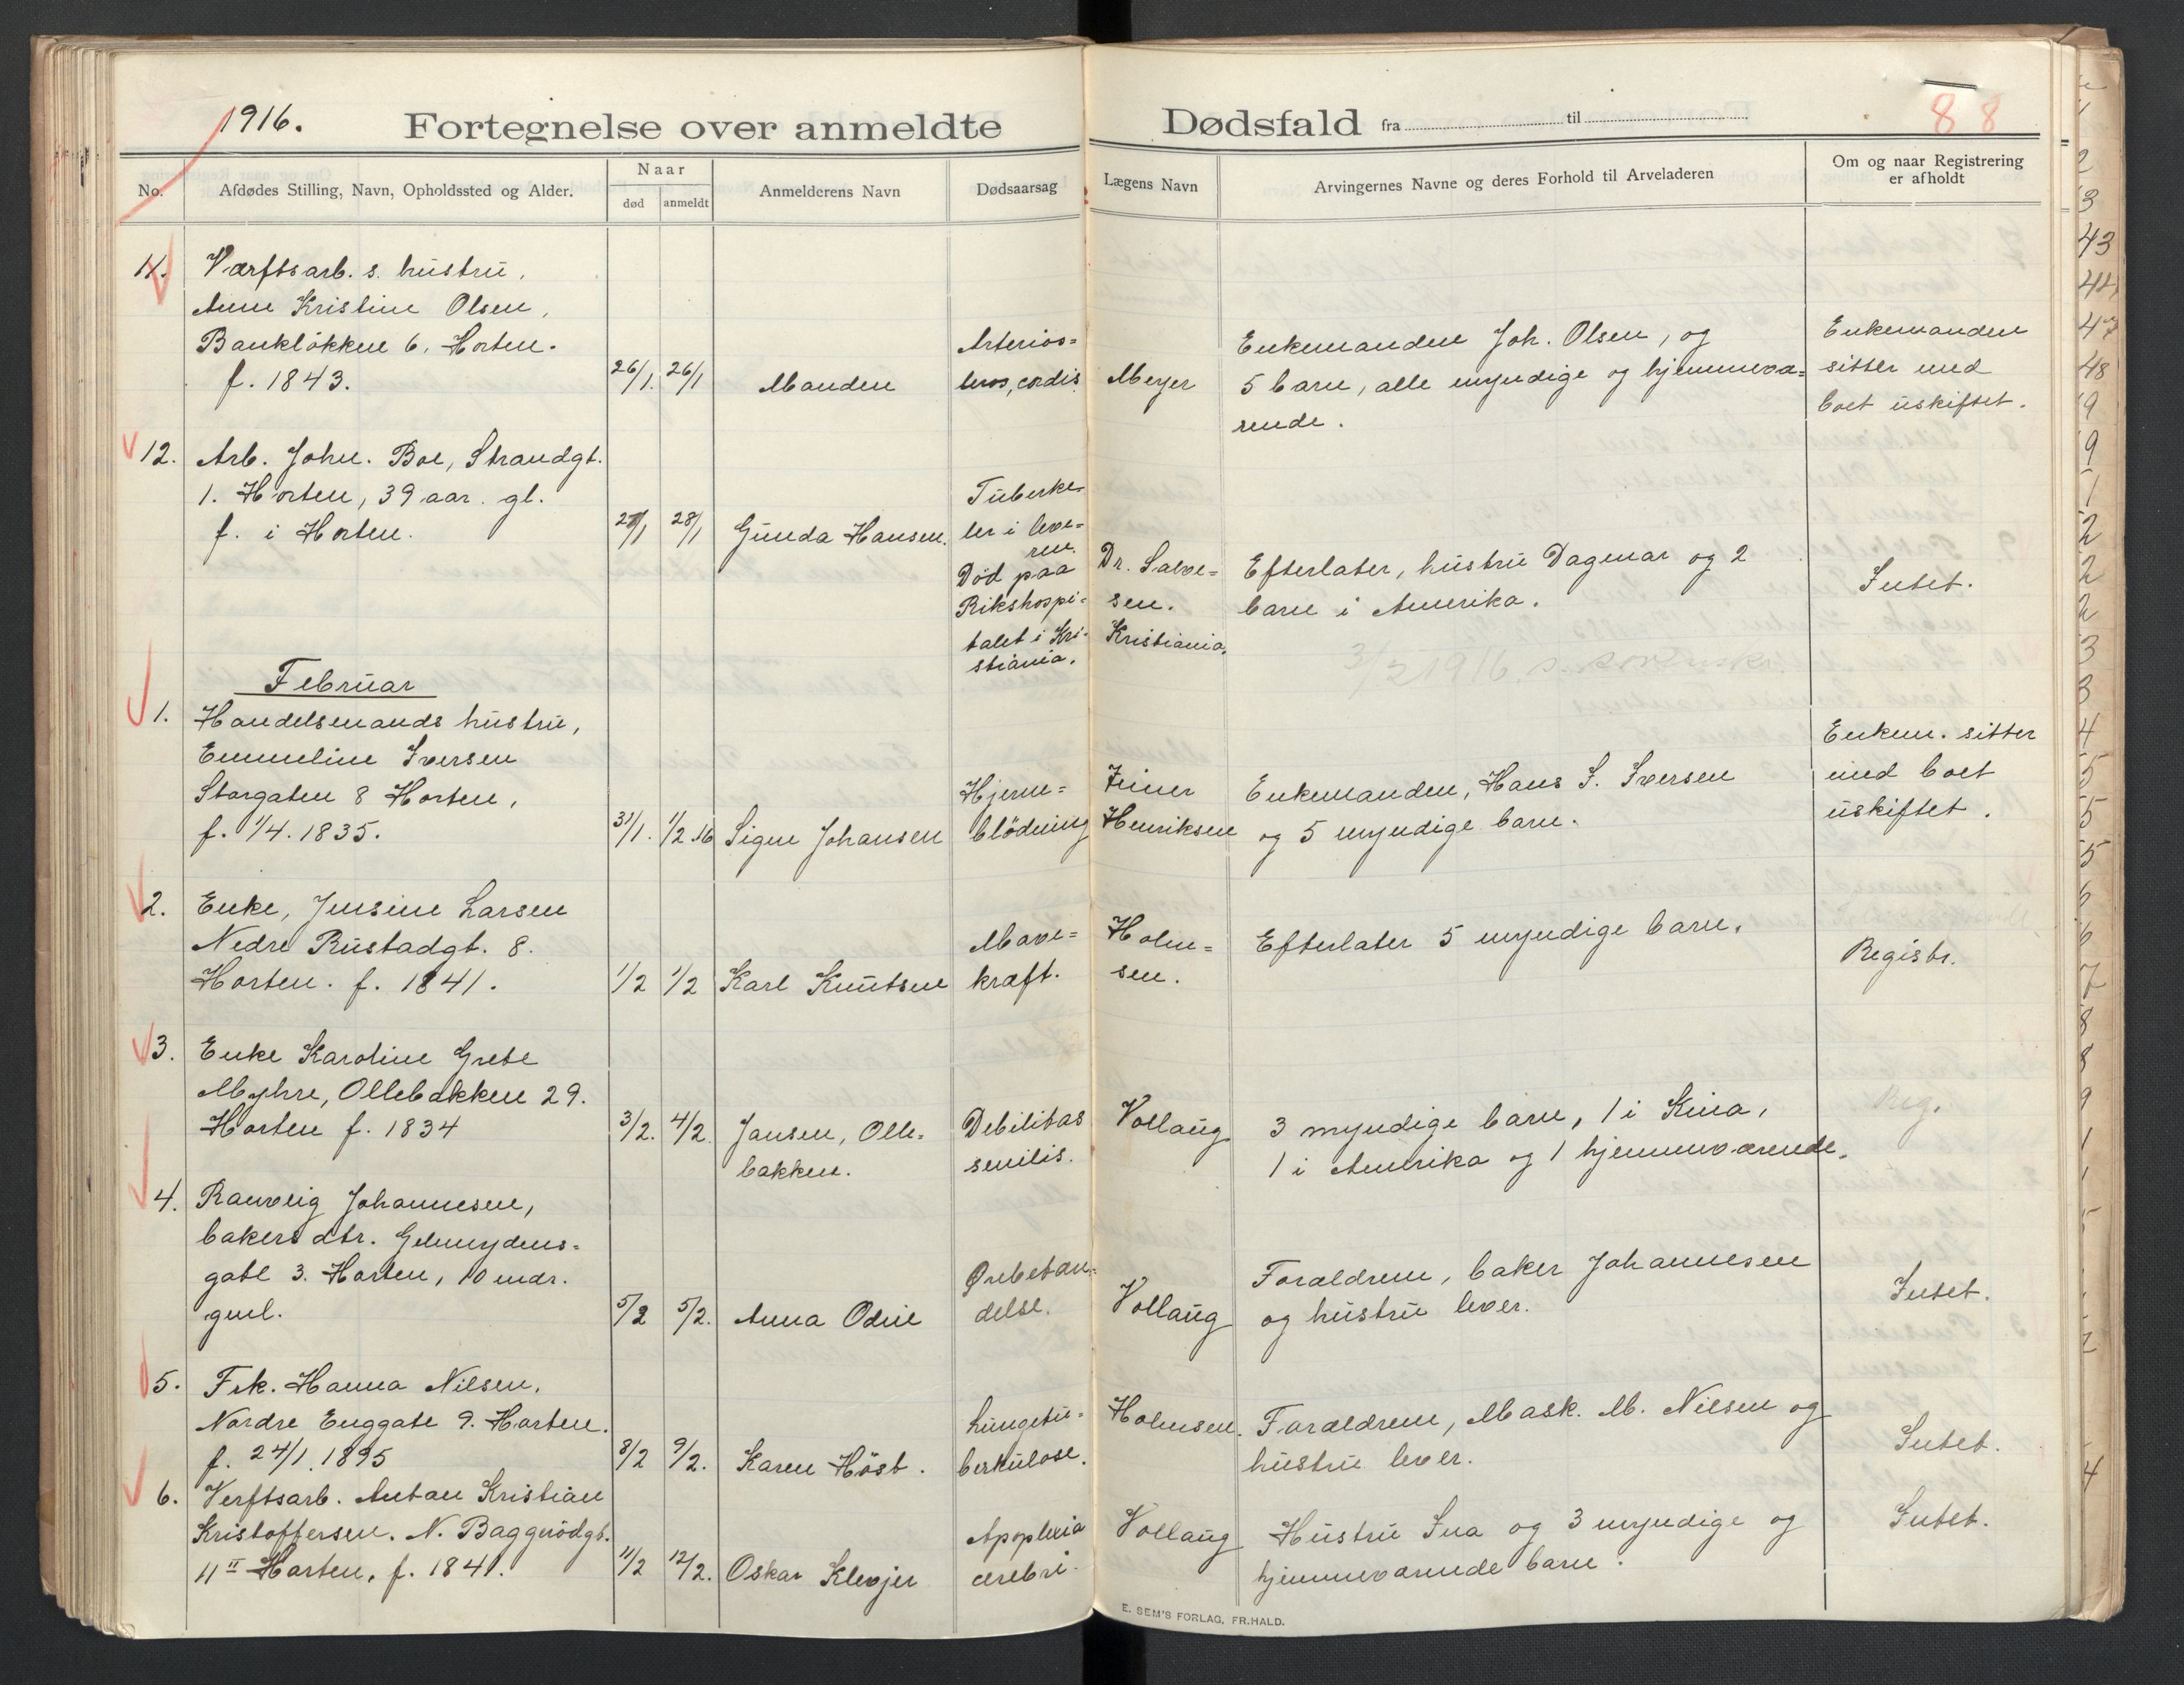 1916.
Fortegnelse over anmeldte Dødsfald fra til
88
No.
Afdødes Stilling, Navn, Opholdssted og Alder.
Naar
død
anmeldt
Anmelderens Navn
Dødsaarsag
Lægens Navn
Arvingernes Navne og deres Forhold til Arveladeren
Om og naar Registrering
er afholdt
11.
Værftsarb. s. hustru,
Anne Kristine Olsen,
Bankløkken 6, Horten.
f. 1843.
26/1. 26/1
Manden
Arterios=
leros, cordis
Meyer
Enkemanden Joh. Olsen, og
5 barn, alle myndige og hjemmevæ=
rende.
Enkemanden
sitter med
boet uskiftet.
12.
Arb. John. Boe, Strandgt.
1. Horten, 39 aar. gl.
f. i Horten.
27/1 28/1
Gunda Hansen.
Tuberke=
ler i leve=
ren.
Død paa
Rikshospi=
talet i Kri=
stiania.
Dr. Salve=
sen.
Kristiania.
Efterlater, hustru Dagmar og 2
barn i Amerika.
Intet.
3/2 1916.
Februar
1.
Handelsmands hustru,
Emmeline Iversen
Storgaten 8 Horten,
f. 1/4. 1835.
31/1. 1/2 16
Signe Johansen
Hjerne=
blödning
Henriksen
Enkemanden, Hans S. Iversen
og 5 myndige barn.
Enkem. sitter
med boet
uskiftet.
2.
Enke, Jensine Larsen
Nedre Rustadgt. 8.
Horten. f. 1841.
1/2 1/2
Karl Knutsen
Mave=
kræft.
Holm=
sen.
Efterlater 5 myndige barn.
Registr.
3.
Enke Karoline Grete
Myhre, Ollebakken 29.
Horten f. 1834
3/2. 4/2.
Jansen, Olle=
bakken.
Debilitas
senilis.
Vollaug
3 myndige barn, 1 i Kina,
1 i Amerika og 1 hjemmeværende.
Reg.
4.
Ranveig Johannesen,
bakers dtr. Gelmydens=
gate 3. Horten, 10 mdr.
gml.
5/2 5/2.
Anna Odne
Ørebetæn=
delse.
Vollaug
Forældrene, baker Johannesen
og hustru lever.
Intet.
5.
Frk. Hanna Nilsen,
Nordre Enggate 9. Horten.
f. 24/1. 1895
8/2 9/2.
Karen Höst.
Lungetu=
berkulose.
Holmsen.
Forældrene, Mask. M. Nilsen og
hustru lever.
Intet.
6.
Verftsarb. Anton Kristian
Kristoffersen. N. Baggerödgt.
11 II Horten, f. 1841.
11/2 12/2.
Oskar Klevjer
Apoplexia
cerebri.
Vollaug
Hustru Ina og 3 myndige og
hjemmeværende barn.
Intet.
E. SEM'S FORLAG, FR.HALD.